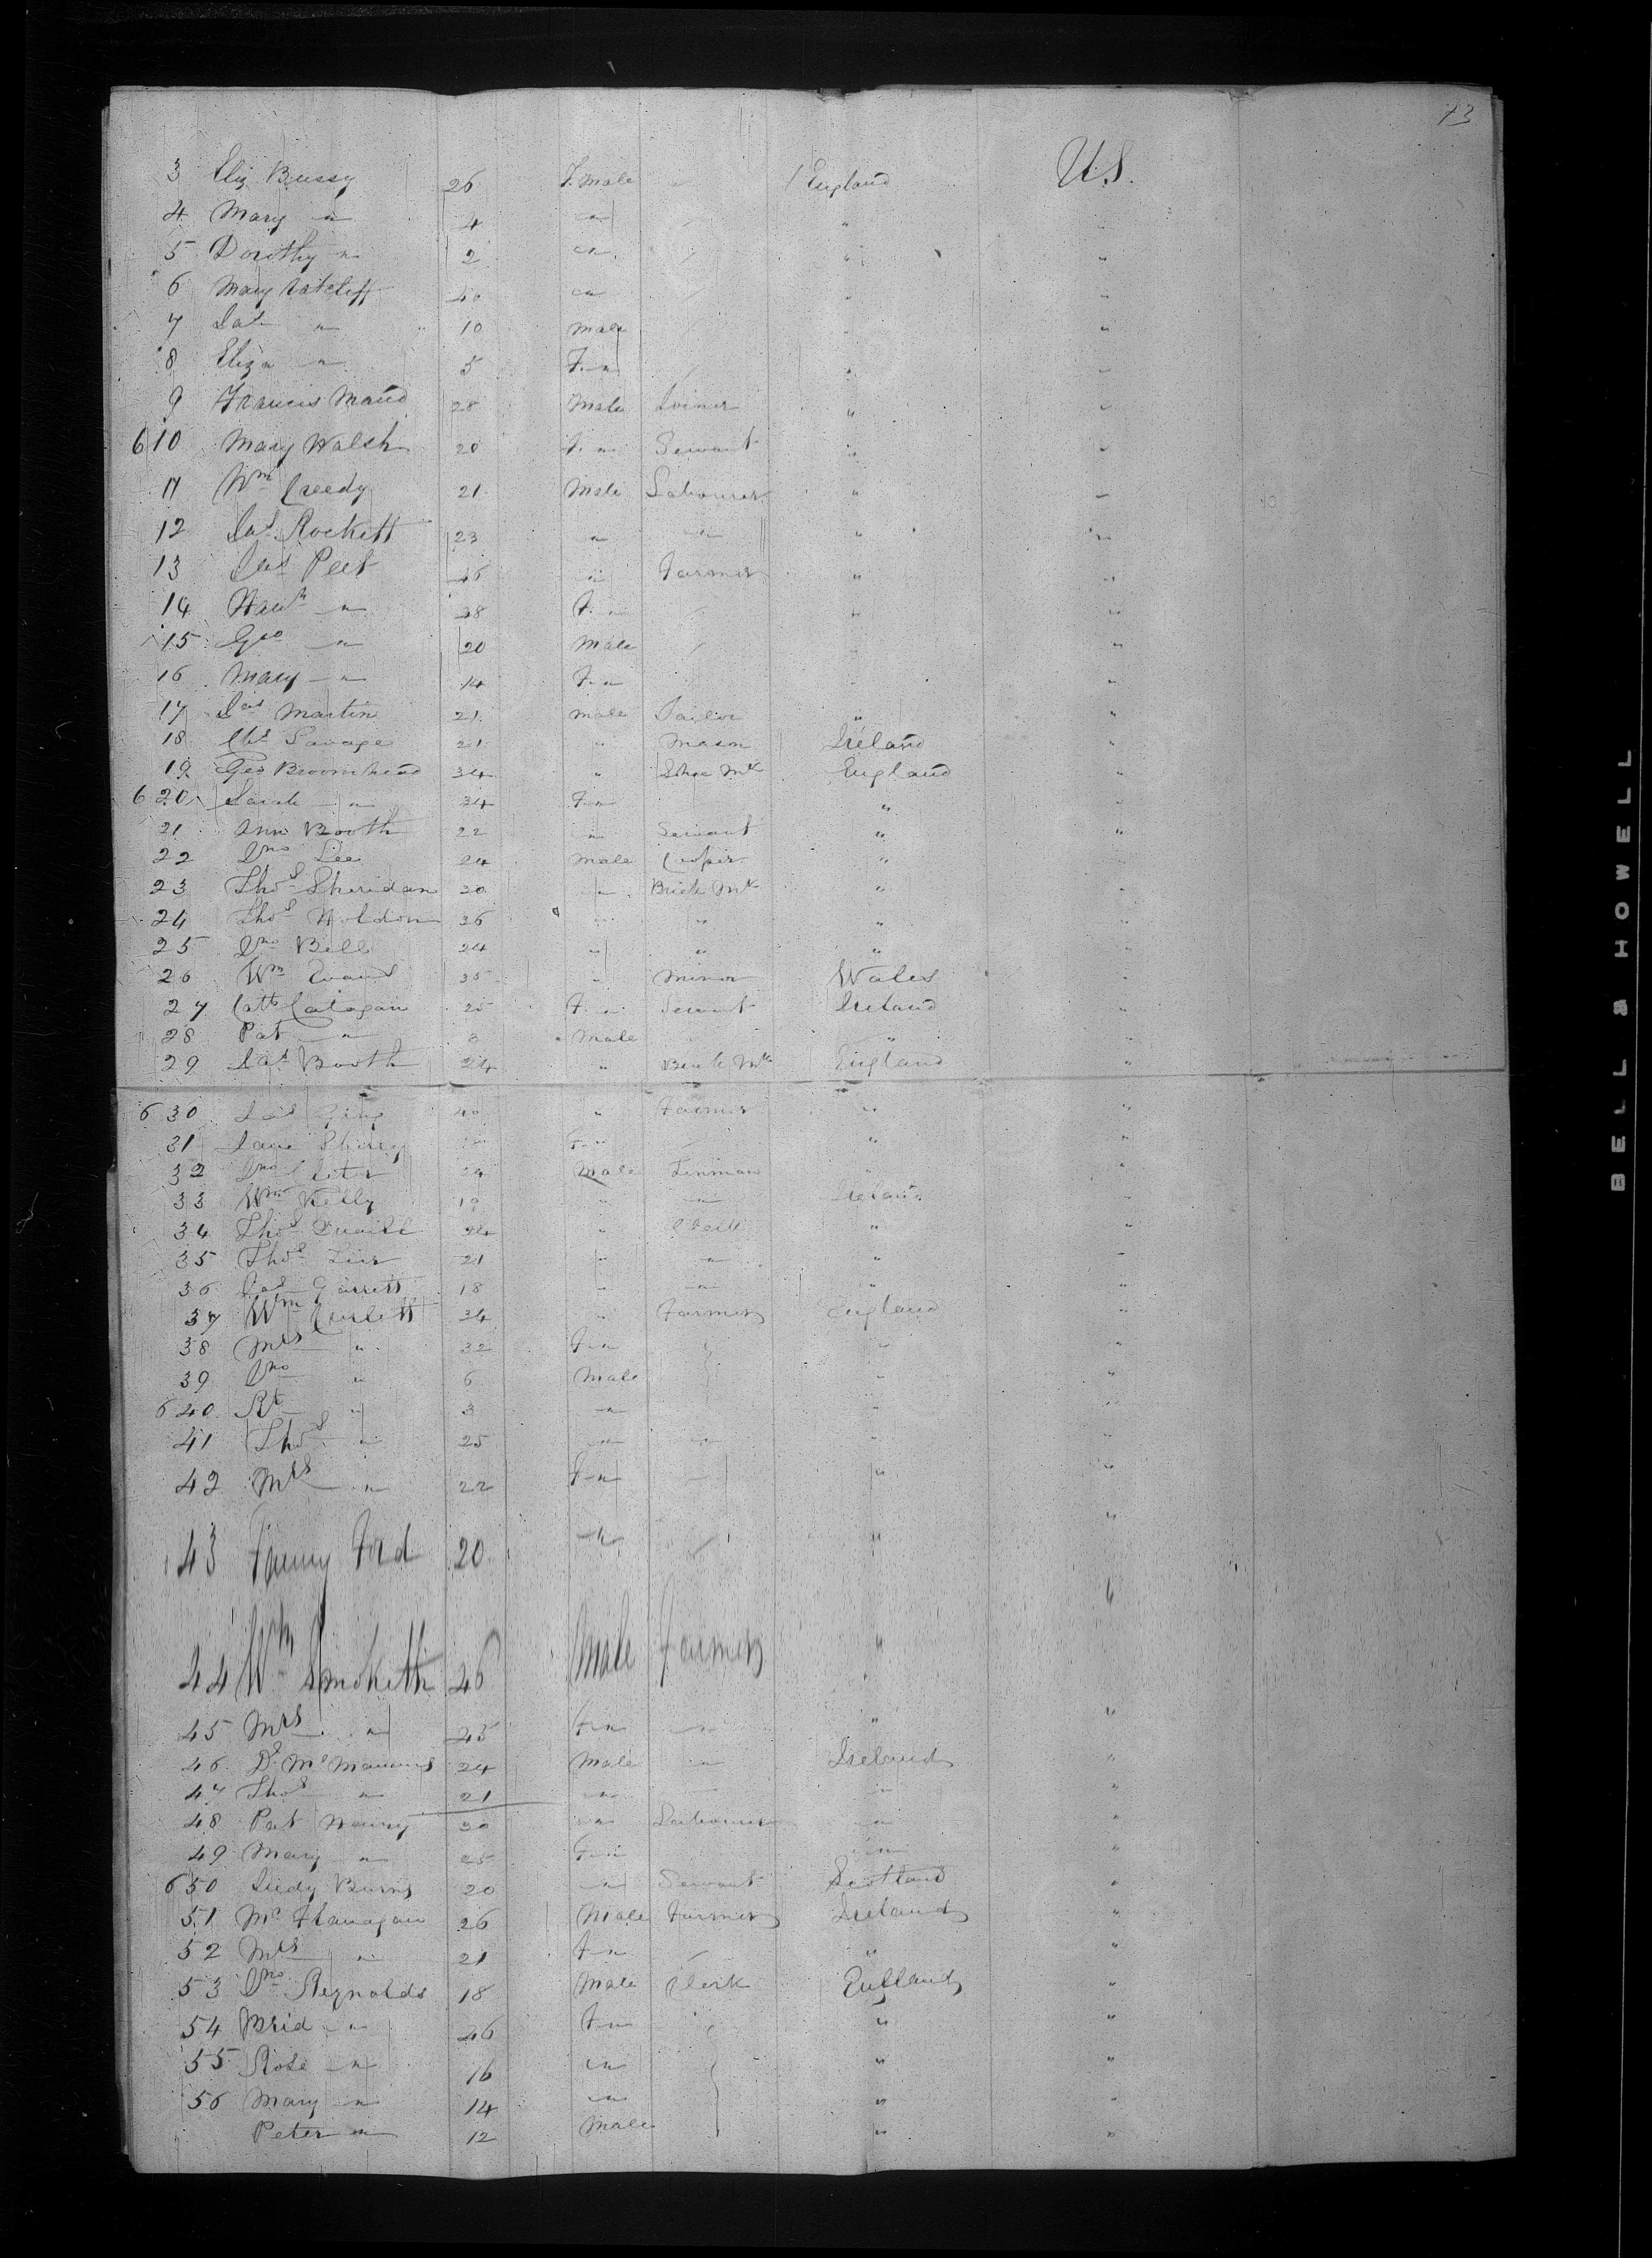 73
3 Eliz Bussy 26 F. male " England U.S.
4 Mary " 4 " " "
5 Dorothy " 2 " " "
6 Mary Ratcliff 40 " " "
7 Jas " 10 male " "
8 Eliza " 5 F. " " "
9 Francis Maud 28 Male Joiner " "
610 Mary Walsh 20 F. " Servant " "
11 Wm Creedy 21 Male Labourer " "
12 Jas Rockett 23 " " " "
13 Jas Peet 46 " Farmer " "
14 Hanh " 38 F. " " "
15 Geo " 20 Male " "
16 Mary " 14 F. " " "
17 Jas Martin 21 male Tailor " "
18 Chs Savage 21 " Mason Ireland "
19 Geo Broomhead 34 " Shoe Mk England "
620 Sarah " 34 F " " "
21 Ann Booth 22 " Servant " "
22 Jno Lee 24 male Cooper " "
23 Thos Sheridan 20 " Brick Mk " "
24 Thos Holdion 36 " " " "
25 Jno Bell 24 " " " "
26 Wm Evans 35 " Minor Wales "
27 Cath Calogan 25 F. " Servant Ireland "
28 Pat " 3 male " "
29 Jas Booth 24 " Mk England "
630 Jas 40 " Farmer " "
31 Jane F " " "
32 Jno 24 Male Tinman " "
33 Wm Kelly 19 " " Ireland "
34 Thos 24 " Clerk " "
35 Thos 21 " " " "
36 Jas Garrett 18 " " " "
37 Wm Curlett 34 " Farmer England "
38 Mrs " 32 F " " "
39 Jno " 6 Male " "
640 Rt " 3 " " "
41 Thos " 25 " " " "
42 Mrs " 22 F " " "
43 Fanny Ford 20 " " "
44 Wm 46 Male Farmer " "
45 Mrs " 45 F " " "
46 Ds McManus 24 Male " Ireland "
47 Thos " 21 " " "
48 Pat 30 " Labourer " "
49 Mary " 25 F " " "
650 Judy Burns 20 " Servant Scotland "
51 Mc Flanagan 26 Male Farmer Ireland "
52 Mrs " 21 F " " "
53 Jno Reynolds 18 Male Clerk England "
54 Brid " 46 F " " "
55 Rose " 16 " " "
56 Mary " 14 " " "
Peter " 12 Male " "
BELL & HOWELL